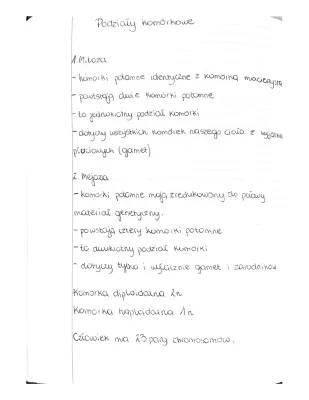 Podziały komórkowe
1. Mitoza
- komórki potomne identyczne z komórką macierzystą
- powstają dwie komórki potomne
- to jednokrotny podział komórki
- dotyczy wszystkich komórek naszego ciała z wyjątkiem
płciowych (gamet)
2. Mejoza
- komórki potomne mają zredukowany do połowy
materiał genetyczny.
- powstają cztery komórki potomne
- to dwukrotny podział komórki
- dotyczy tylko i wyłącznie gamet i zarodników
Komórka diploidalna 2n
Komórka haploidalna 1n
Człowiek ma 23 pary chromosomów.